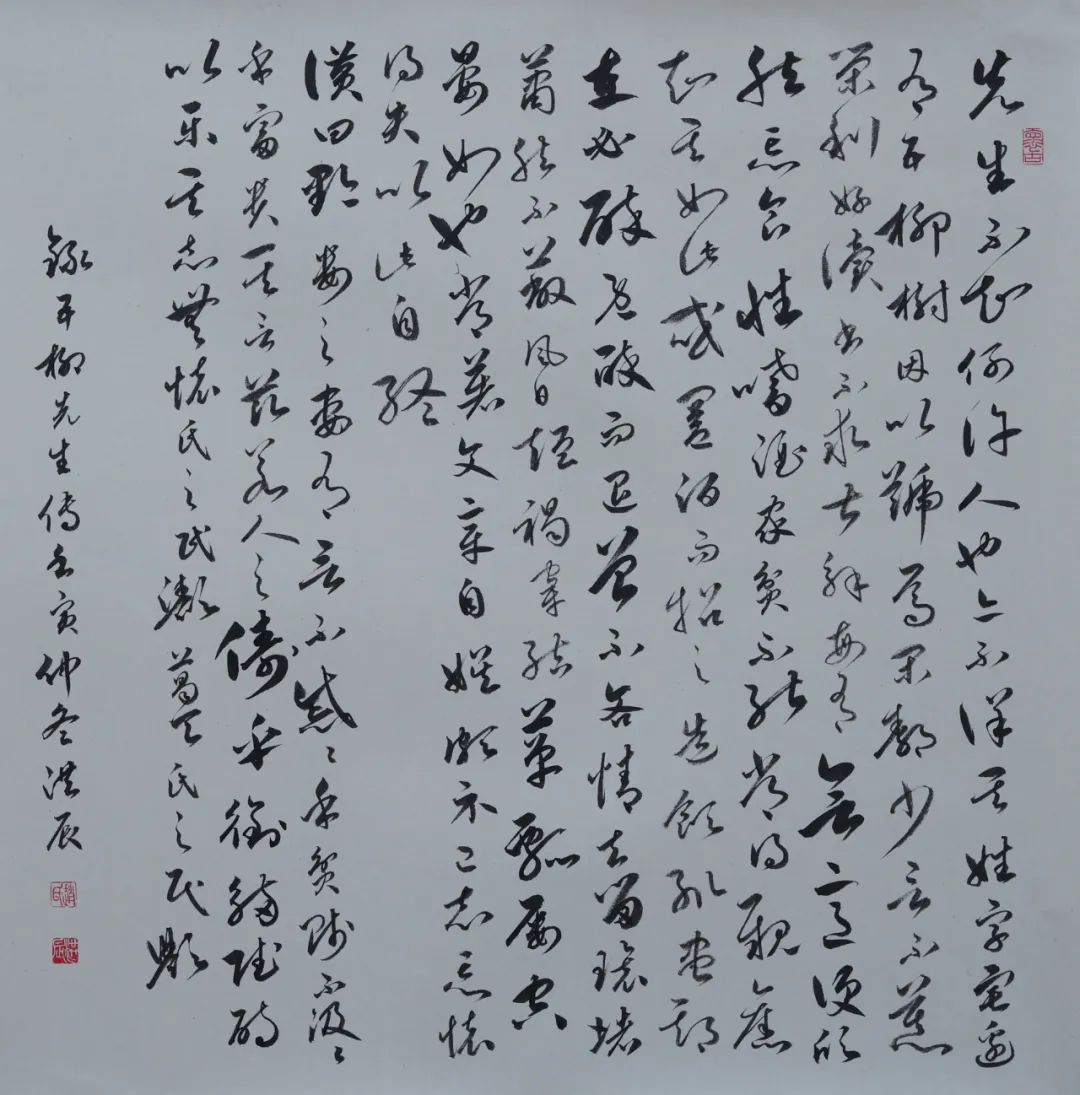 先生不知何许人也亦不详其姓字宅边
有五柳树因以号焉闲静少言不慕
荣利好读书不求甚解每有会意便欣
然忘食性嗜酒家贫不能常得亲旧
知其如此或置酒而招之造饮辄尽期
在必醉既醉而退曾不吝情去留环堵
萧然不蔽风日短褐穿结箪瓢屡空
晏如也常著文章自娱颇示己志忘怀
得失以此自终
赞曰黔娄之妻有言不戚戚于贫贱不汲汲
于富贵其言兹若人之俦乎衔觞赋诗
以乐其志无怀氏之民欤葛天氏之民欤
录五柳先生传壬寅仲冬洪辰